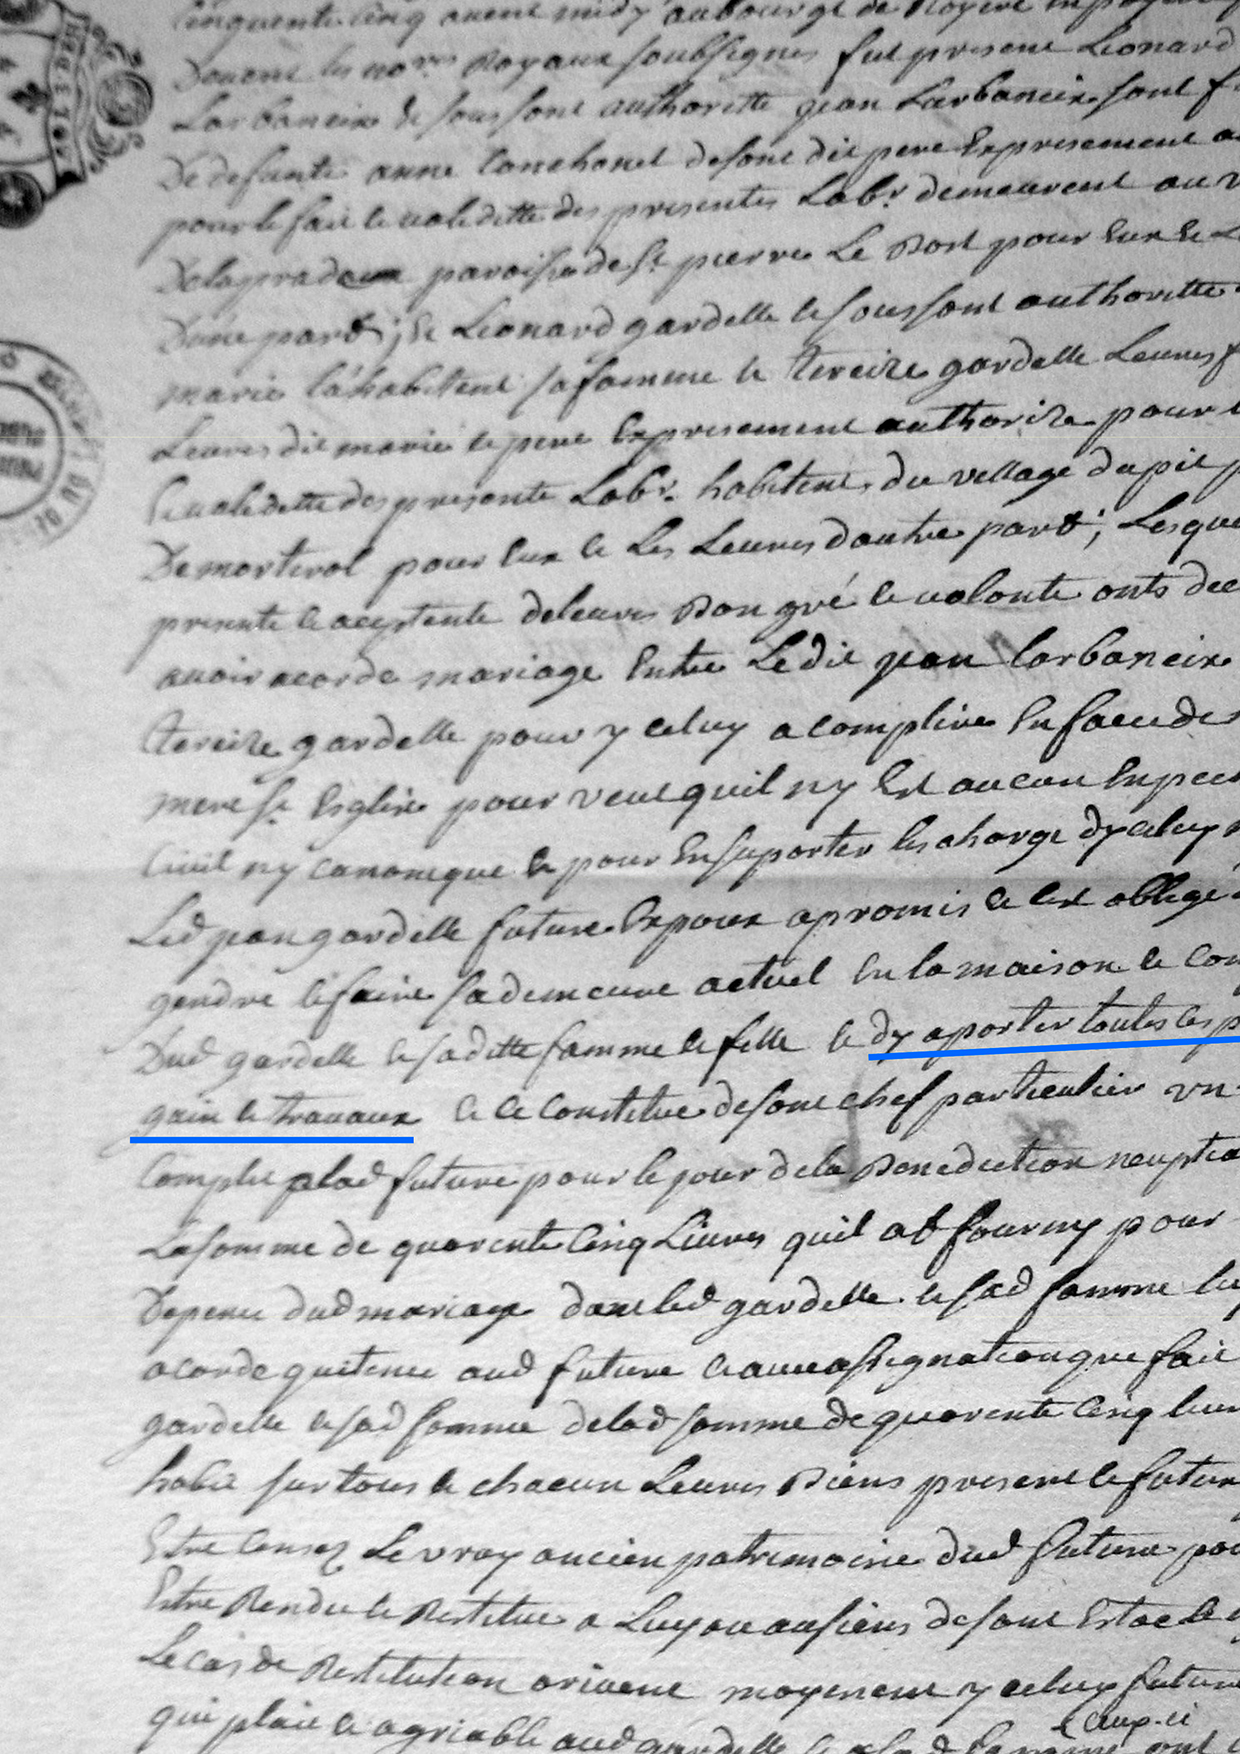 Cinquente Cinq avent midy au bourg de Royere
Davent les no.res Royaux soubsignes fut presene Leonard
Larbaneix & sous sont authoritte jean Larbaneix sont
De defunte anne Conchonet de sont dit pere Expresement
pour le fait & validitte des presentes Lab.r demeurent au
paroisse de S.t pierre Le Bost pour Eux &
Dune part; & Leonard gardelle & sous sont authoritte
marie lahabitent sa famme & tereize gardelle Leures
Leures dit marie & pere Expresement authorize pour
& validitte des presente Lab.r habitent du village du pit
De morterol pour Eux & Les Leures dautre part; Lesque
presente & aceptente de leures Bon gré & volonte onts
avoir acorde mariage Entre Ledit jean larbaneix
tereize gardelle pour y celuy acomplire En face de
mere S.te Esglize pour veut quil ny Est aucun Enpec
Civil ny canonique & pour En suporter les charge dy celuy
Led jean gardelle future Expoux a promis & cest obblegé
gendre & faire sa demeure actuel En la maison & Con
Dud gardelle & sa ditte famme & fille & dy aporter toutes ces p
gain & travaux & ce Constitue de sont chef particulier un
Complit a lad future pour le jour de la Benediction neuptia
La somme de quarente Cinq Livres quil at fourny pour
Depence dud mariage dont led gardelle & sad famme
acorde quitence aud future & assignation que fait
gardelle & sad famme de lad somme de quarente Cinq livr
sur tous & chacun Leures Biens present & futur
Estre Censez Le vray ancien patrimoine dud future pou
Estre Rendu & Restitue a Luy ou au siens de sont Estoc &
Le cas de Restitution arivent moyenent y celuy future
& ceux-ci
qui plait & agriable aud gardelle & a lad famme ont